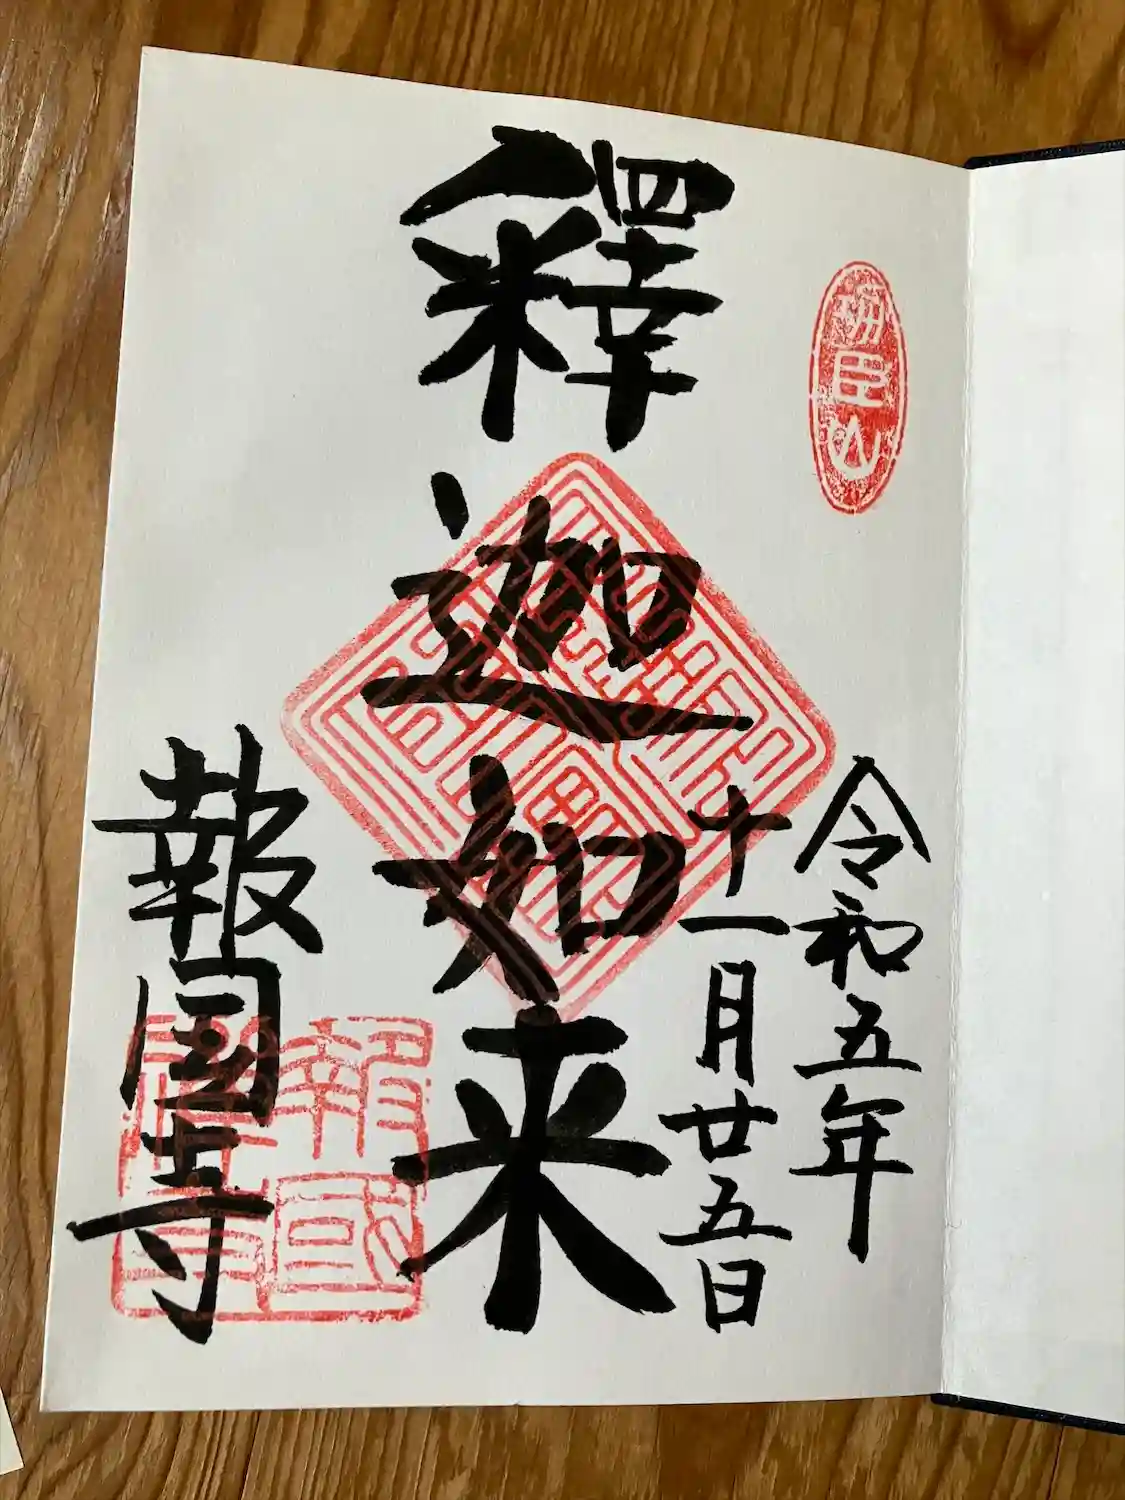 令和五年
十一月廿五日
釋迦如来
報國寺
報國